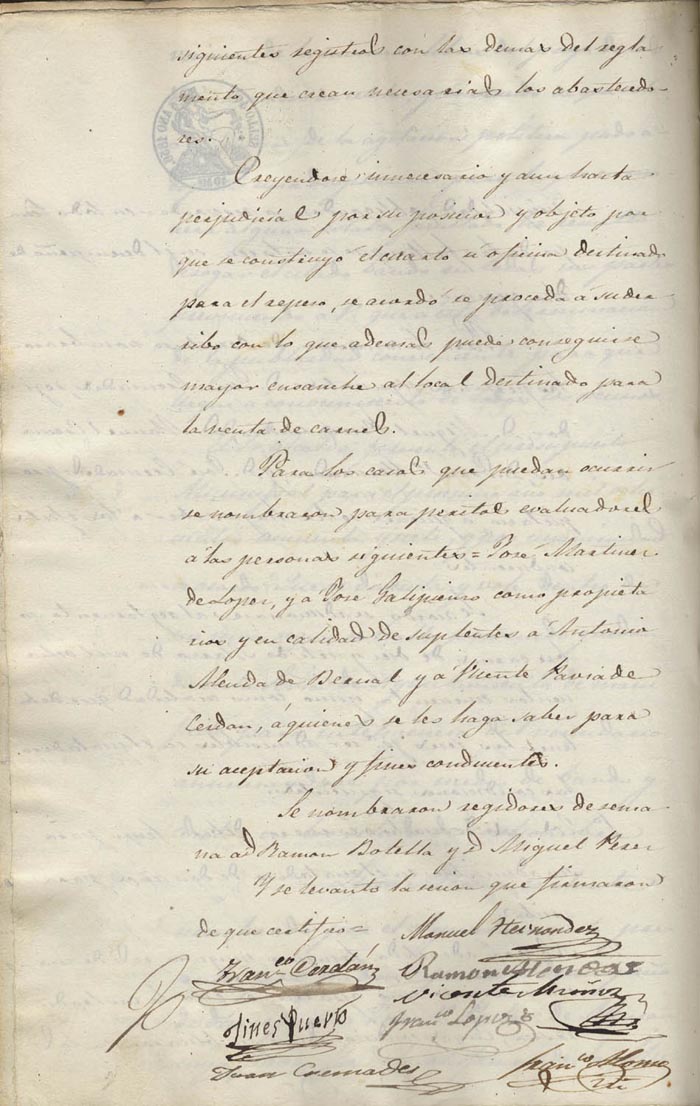 siguientes registros con las demas del regla
mento que crean necesarias los abastecedo-
res.
Creyendose innecesario y aun hasta
perjudicial por su posicion y objeto por
que se construyó el cuarto ú oficina destinado
para el repeso, se acordó se proceda á su der
ribo con lo que ademas puede conseguirse
mayor ensanche al local destinado para
la venta de carnes.
Para los casos que puedan ocurrir
se nombraron para peritos evaluadores
á las personas siguientes = José Martinez
de Lopez, y a José Galipienso como propieta
rios y en calidad de suplentes á Antonio
de Bernal y á Vicente de
Cerdan, á quienes se les haga saber para
su aceptacion y fines conducentes.
Se nombraron regidores de sema
na a d Ramon Botella y d Miguel Perez
Y se levanto la secion que firmaron
de que certifico =
Manuel Hernandez
Franco Cerdán
Ramon
Vicente Muñoz
Gines Puerto
Franco Lopez
Juan Cremades
Franco